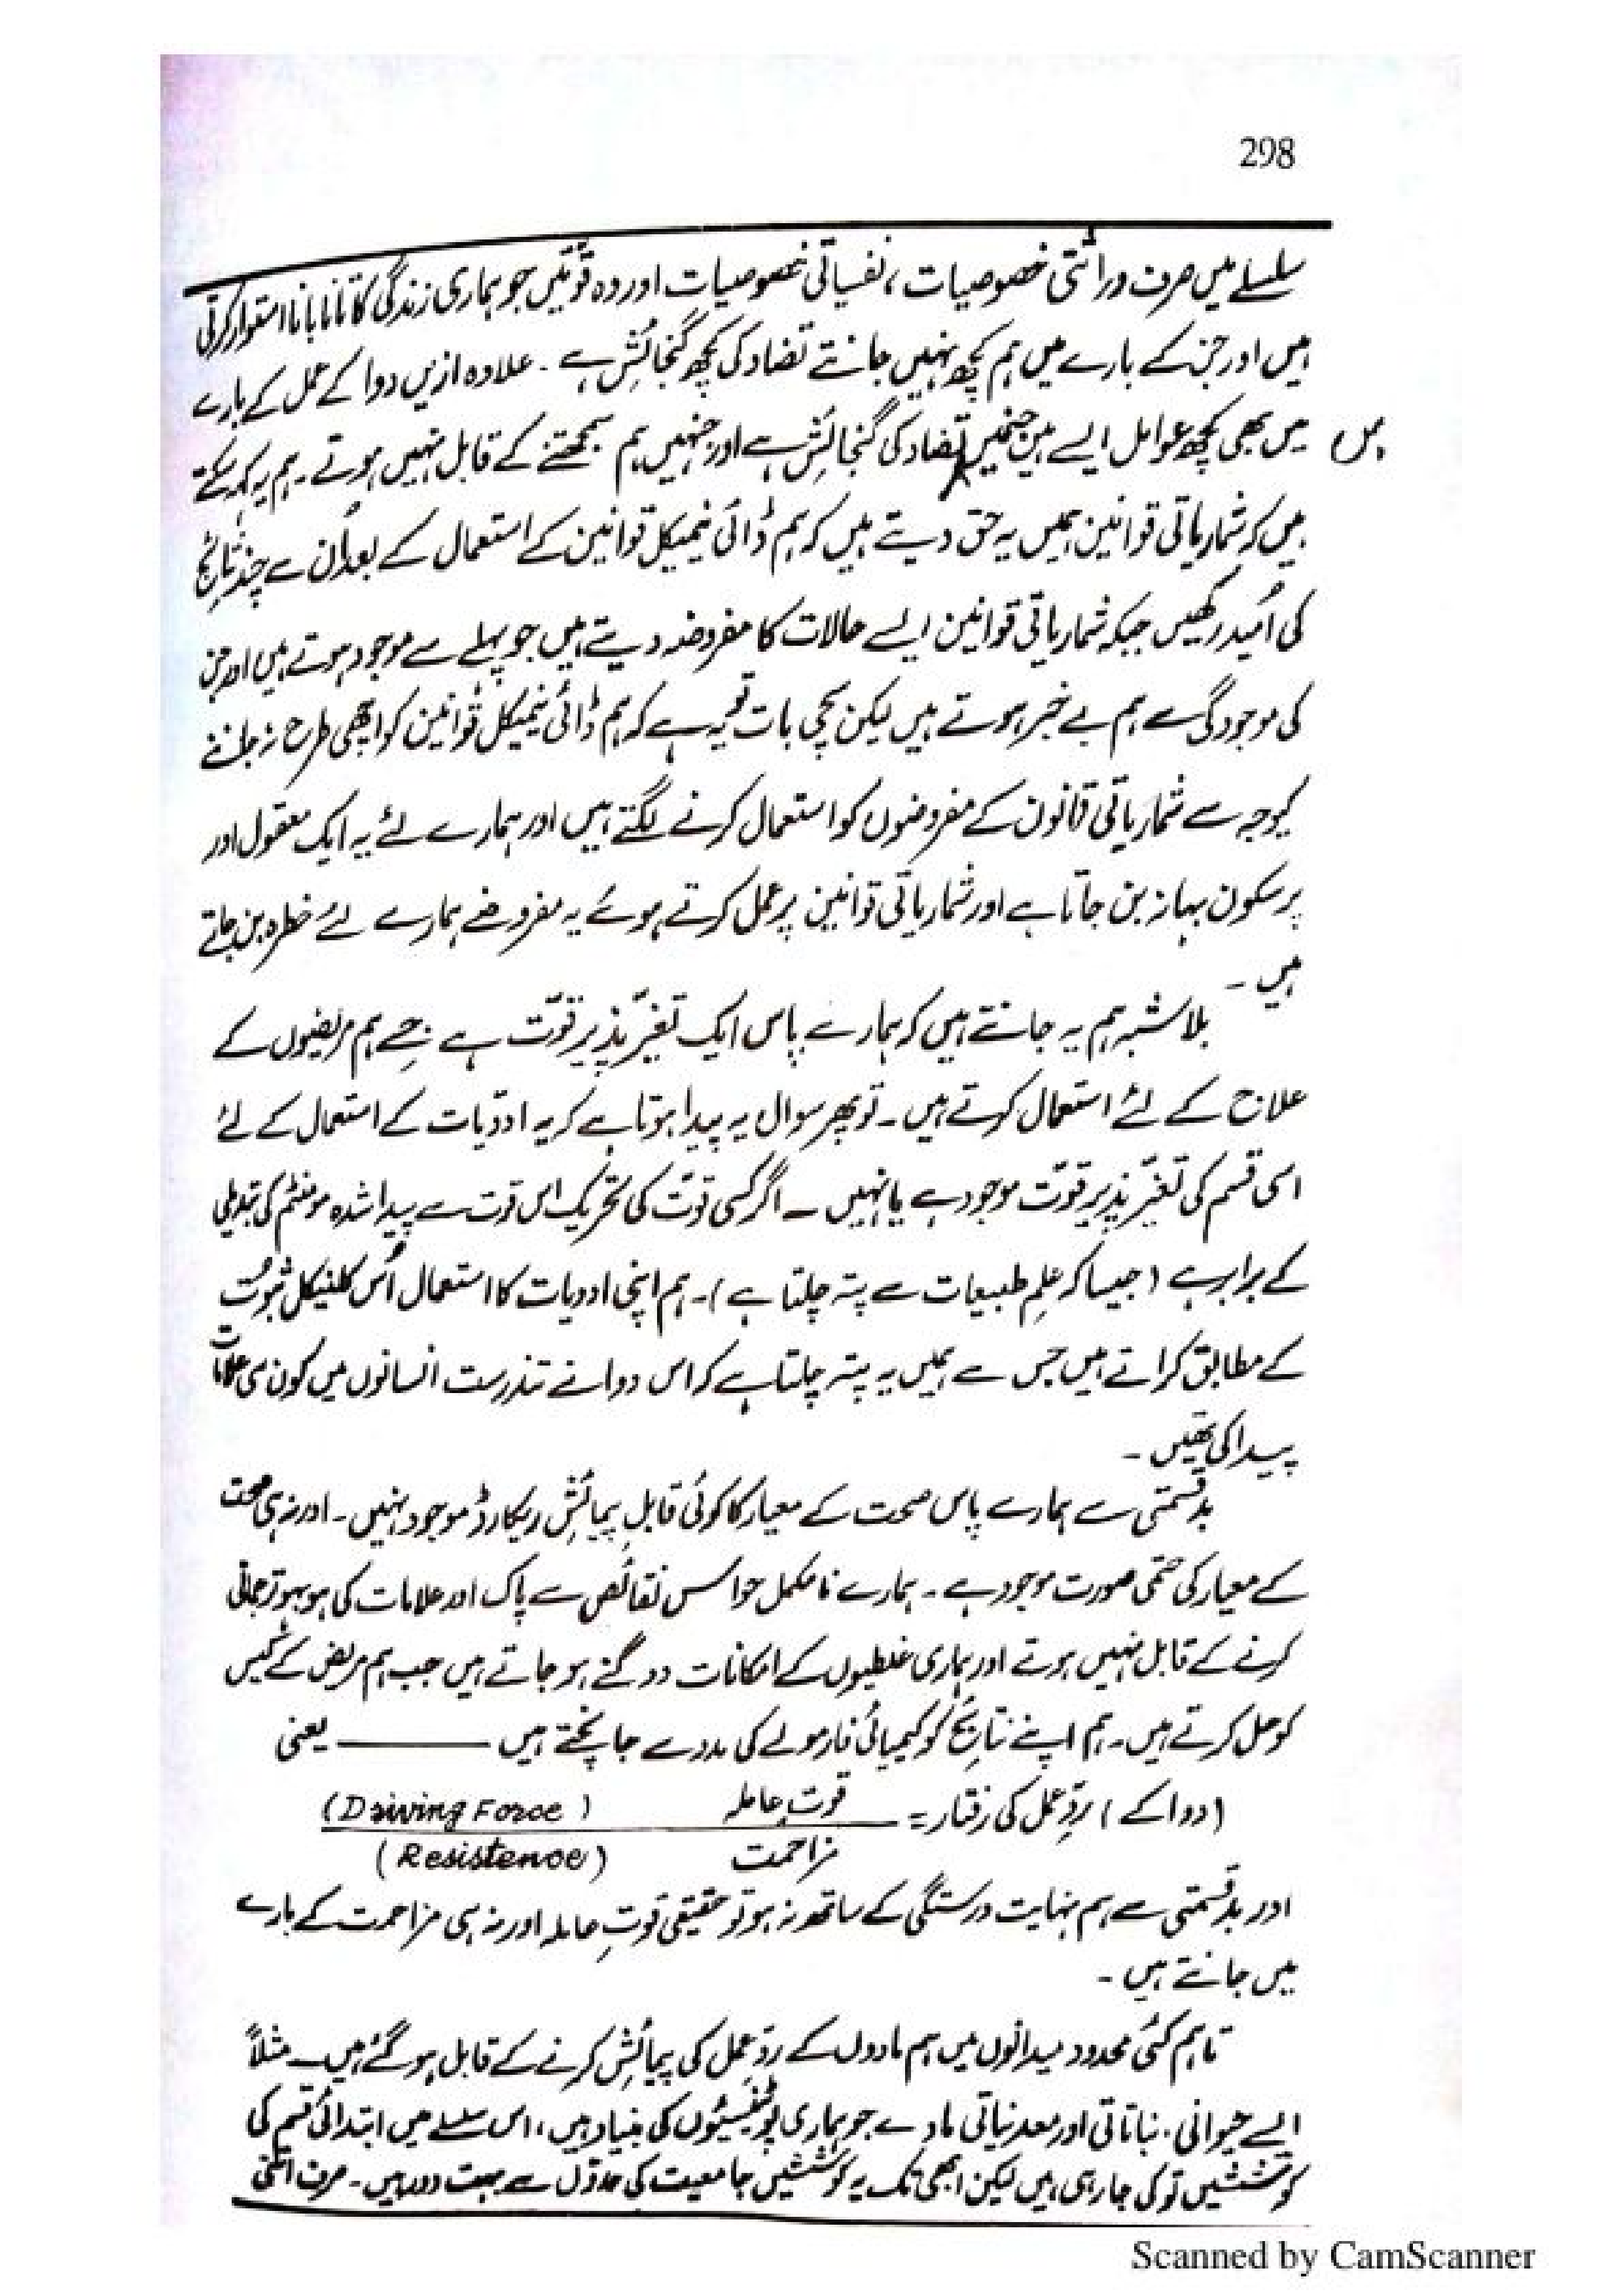 298
سلسلے میں صرف وراثتی خصوصیات، نفسیاتی خصوصیات اور وہ قوتیں جو ہماری زندگی کا تانا بانا استوار کرتی
ہیں اور جن کے بارے میں ہم کچھ نہیں جانتے تضاد کی کچھ گنجائش ہے ۔ علاوہ ازیں دوا کے عمل کے بارے
میں بھی کچھ عوامل ایسے ہیں جنمیں تضاد کی گنجائش ہے اور جنہیں ہم سمجھنے کے قابل نہیں ہوتے ۔ ہم یہ کہہ سکتے
ہیں کہ شماریاتی قوانین ہمیں یہ حق دیتے ہیں کہ ہم ڈائی نیمیکل قوانین کے استعمال کے بعد اُن سے چند نتائج
کی اُمید رکھیں جبکہ شماریاتی قوانین ایسے حالات کا مفروضہ دیتے ہیں جو پہلے سے موجود ہوتے ہیں اور جن
کی موجودگی سے ہم بے خبر ہوتے ہیں لیکن سچی بات تو یہ ہے کہ ہم ڈائی نیمیکل قوانین کو اچھی طرح نہ جاننے
کیوجہ سے شماریاتی قانون کے مفروضوں کو استعمال کرنے لگتے ہیں اور ہمارے لئے یہ ایک معقول اور
پر سکون بہانہ بن جاتا ہے اور شماریاتی قوانین پر عمل کرتے ہوئے یہ مفروضے ہمارے لئے خطرہ بن جاتے
ہیں ۔
بلاشبہ ہم یہ جانتے ہیں کہ ہمارے پاس ایک تغیّر پذیر قوّت ہے جسے ہم مریضوں کے
علاج کے لئے استعمال کرتے ہیں ۔ تو پھر سوال یہ پیدا ہوتا ہے کہ یہ ادویات کے استعمال کے لئے
اسی قسم کی تغیّر پذیر قوّت موجود ہے یا نہیں ۔ اگر کسی قوّت کی تحریک اس قوت سے پیدا شدہ مومنٹم کی تبدیلی
کے برابر ہے (جیسا کہ علمِ طبیعات سے پتہ چلتا ہے)۔ ہم اپنی ادویات کا استعمال اُس کلینیکل ثبوت
کے مطابق کراتے ہیں جس سے ہمیں یہ پتہ چلتا ہے کہ اس دوا نے تندرست انسانوں میں کون سی علامات
پیدا کی تھیں ۔
بدقسمتی سے ہمارے پاس صحت کے معیار کا کوئی قابلِ پیمائش ریکارڈ موجود نہیں ۔ اور نہ ہی صحت
کے معیار کی حتمی صورت موجود ہے ۔ ہمارے نامکمل حواس نقائص سے پاک اور علامات کی ہو بہو ترجمانی
کرنے کے قابل نہیں ہوتے اور ہماری غلطیوں کے امکانات دوگنے ہو جاتے ہیں جب ہم مریض کے کیس
کو حل کرتے ہیں ۔ ہم اپنے نتائج کو کیمیائی فارمولے کی مدد سے جانچتے ہیں ——— یعنی
(دوا کے) ردِّ عمل کی رفتار = قوتِ عاملہ (Driving Force)
مزاحمت (Resistence)
اور بدقسمتی سے ہم نہایت درستگی کے ساتھ نہ ہو تو حقیقی قوتِ عاملہ اور نہ ہی مزاحمت کے بارے
میں جانتے ہیں ۔
تاہم کئی محدود میدانوں میں ہم مادوں کے ردِّ عمل کی پیمائش کرنے کے قابل ہو گئے ہیں ۔ مثلاً
ایسے حیوانی ، نباتاتی اور معدنیاتی مادے جو ہماری پوٹینسیوں کی بنیاد ہیں ، اس سلسلے میں ابتدائی قسم کی
کوششیں تو کی جا رہی ہیں لیکن ابھی تک یہ کوششیں جامعیت کی حدوں سے بہت دور ہیں ۔ صرف اتنی
Scanned by CamScanner